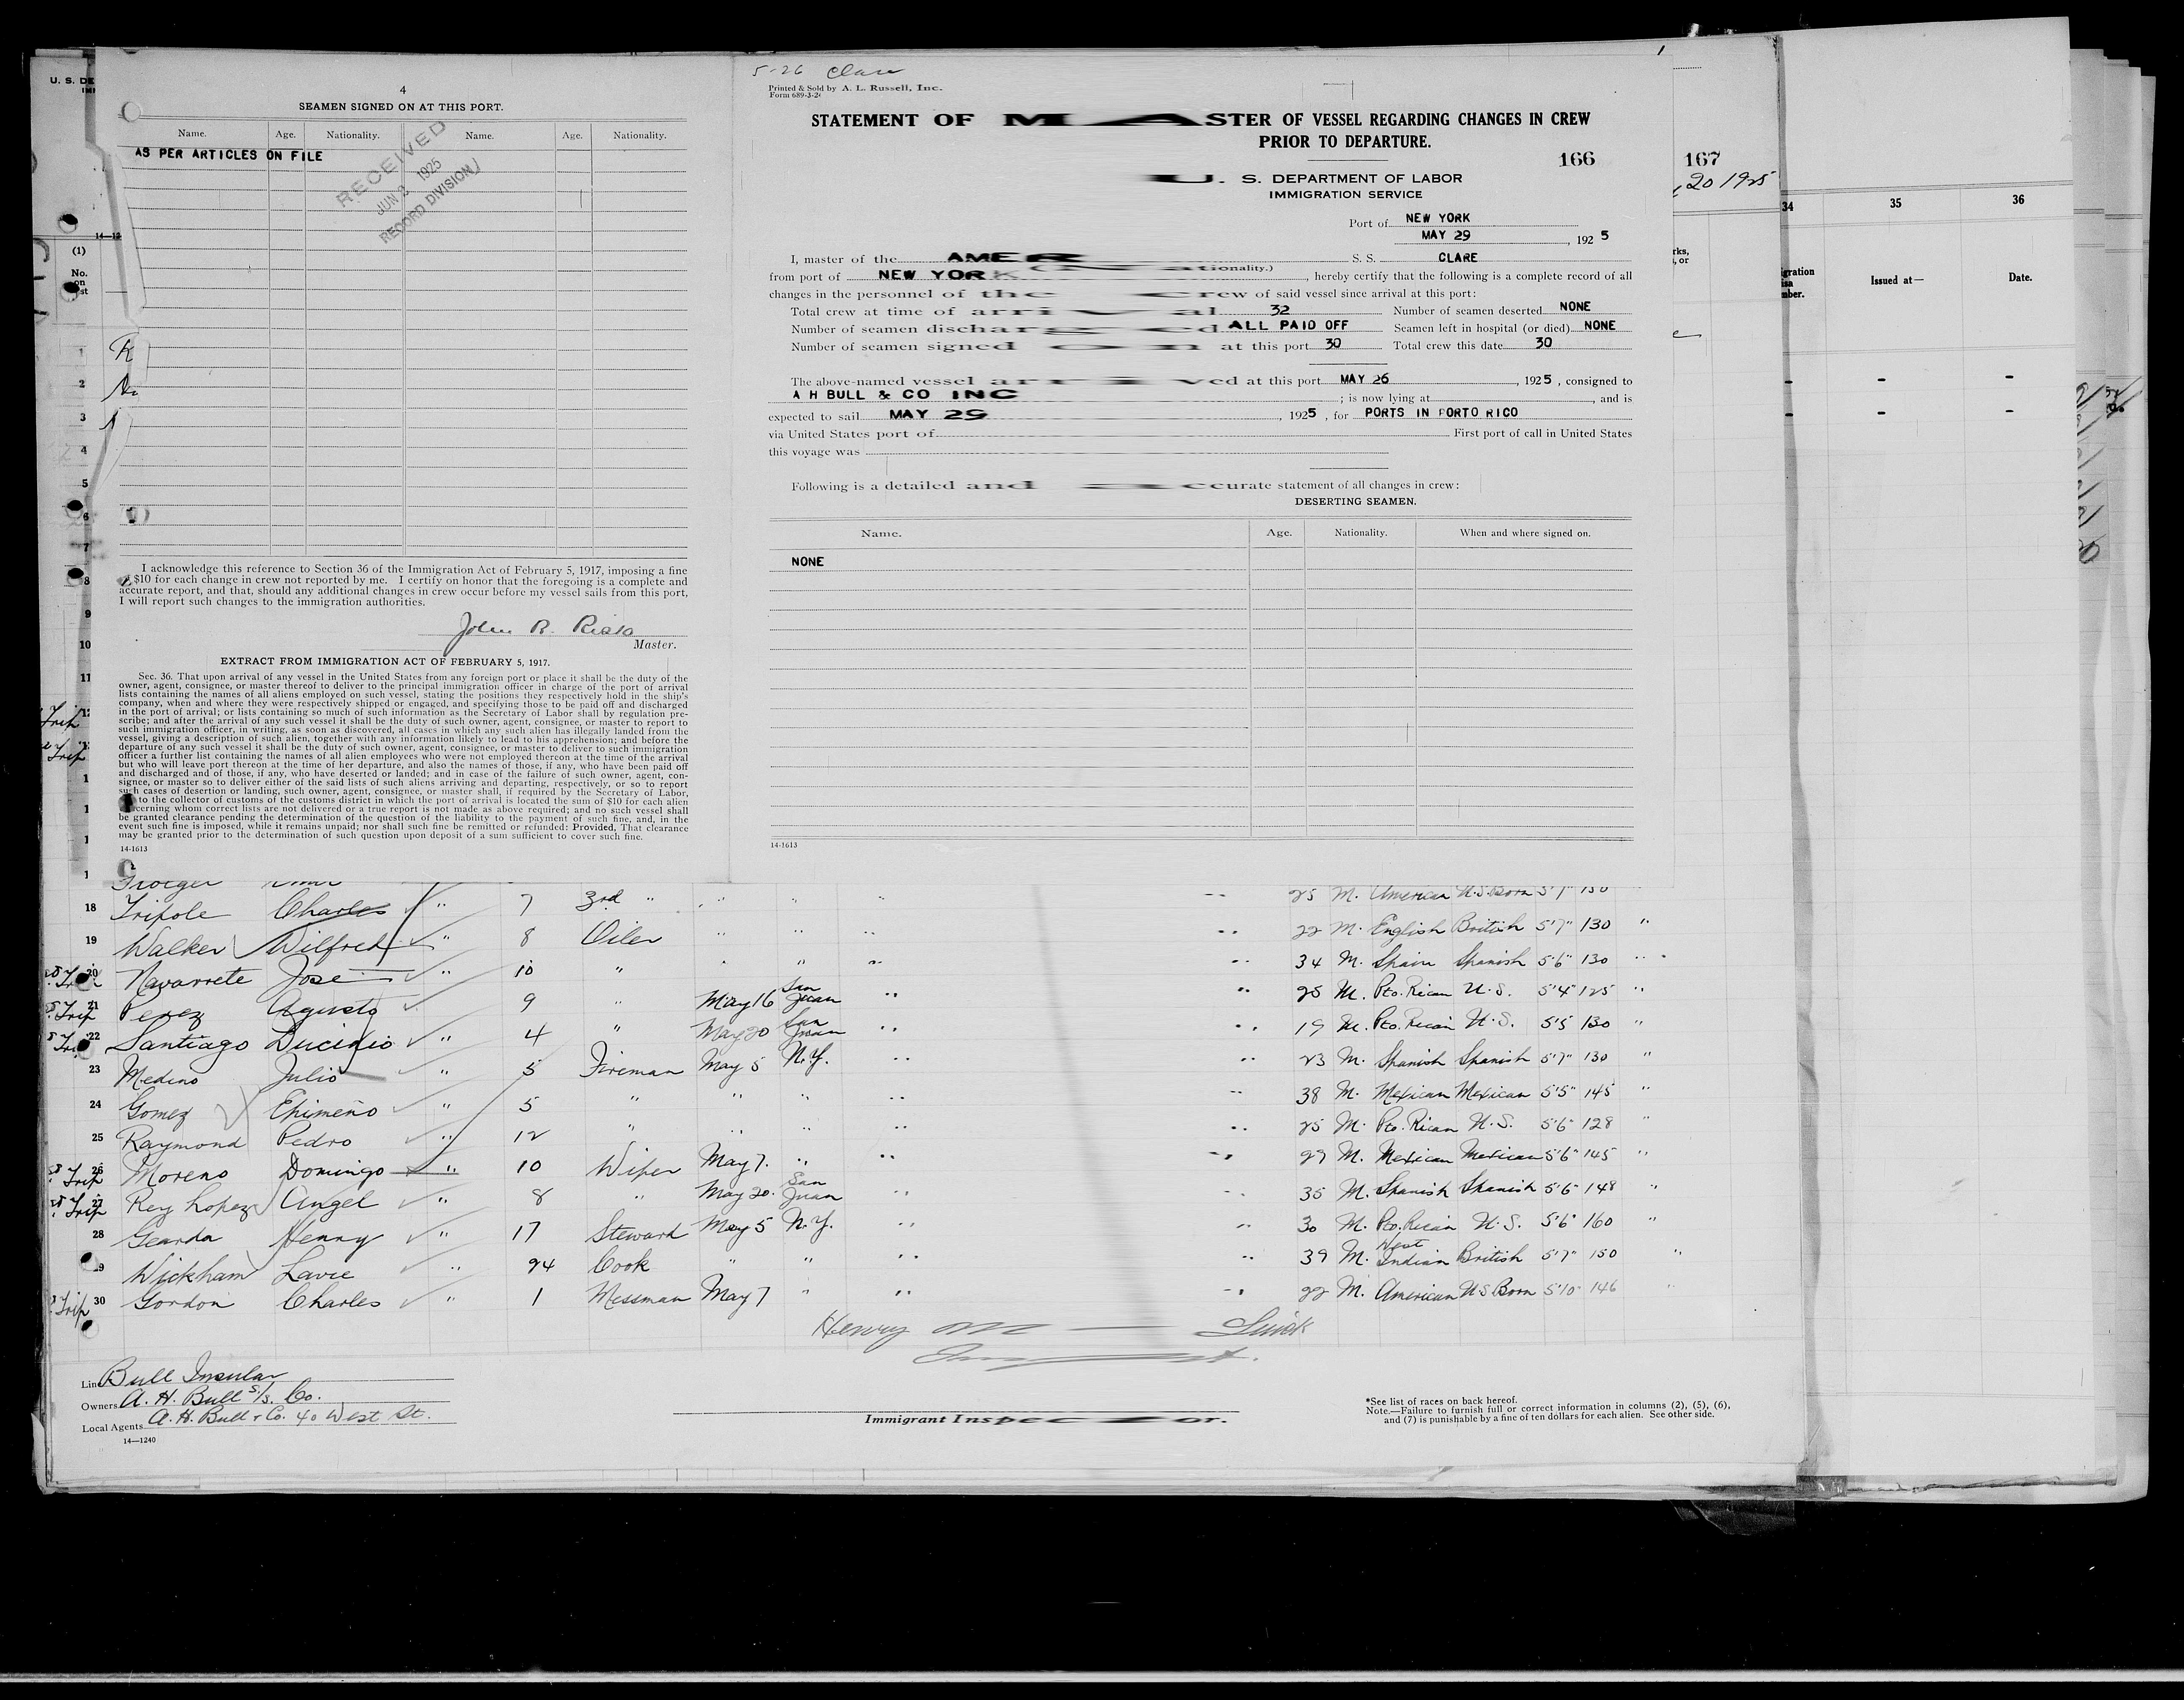 U. S. DE
4
SEAMEN SIGNED ON AT THIS PORT.
Name. Age. Nationality. Name. Age. Nationality.
AS PER ARTICLES ON FILE
RECEIVED
JUN 2 1925
RECORD DIVISION
I acknowledge this reference to Section 36 of the Immigration Act of February 5, 1917, imposing a fine
$10 for each change in crew not reported by me. I certify on honor that the foregoing is a complete and
accurate report, and that, should any additional changes in crew occur before my vessel sails from this port,
I will report such changes to the immigration authorities.
John R.
Master.
EXTRACT FROM IMMIGRATION ACT OF FEBRUARY 5, 1917.
Sec. 36. That upon arrival of any vessel in the United States from any foreign port or place it shall be the duty of the
owner, agent, consignee, or master thereof to deliver to the principal immigration officer in charge of the port of arrival
lists containing the names of all aliens employed on such vessel, stating the positions they respectively hold in the ship's
company, when and where they were respectively shipped or engaged, and specifying those to be paid off and discharged
in the port of arrival; or lists containing so much of such information as the Secretary of Labor shall by regulation pre-
scribe; and after the arrival of any such vessel it shall be the duty of such owner, agent, consignee, or master to report to
such immigration officer, in writing, as soon as discovered, all cases in which any such alien has illegally landed from the
vessel, giving a description of such alien, together with any information likely to lead to his apprehension; and before the
departure of any such vessel it shall be the duty of such owner, agent, consignee, or master to deliver to such immigration
officer a further list containing the names of all alien employees who were not employed thereon at the time of the arrival
but who will leave port thereon at the time of her departure, and also the names of those, if any, who have been paid off
and discharged and of those, if any, who have deserted or landed; and in case of the failure of such owner, agent, con-
signee, or master so to deliver either of the said lists of such aliens arriving and departing, respectively, or so to report
such cases of desertion or landing, such owner, agent, consignee, or master shall, if required by the Secretary of Labor,
to the collector of customs of the customs district in which the port of arrival is located the sum of $10 for each alien
cerning whom correct lists are not delivered or a true report is not made as above required; and no such vessel shall
be granted clearance pending the determination of the question of the liability to the payment of such fine, and, in the
event such fine is imposed, while it remains unpaid; nor shall such fine be remitted or refunded: Provided, That clearance
may be granted prior to the determination of such question upon deposit of a sum sufficient to cover such fine.
14-1613
5-26 Clare
Printed & Sold by A. L. Russell, Inc.
Form 689-3-24
STATEMENT OF MASTER OF VESSEL REGARDING CHANGES IN CREW
PRIOR TO DEPARTURE.
166
U. S. DEPARTMENT OF LABOR
IMMIGRATION SERVICE
Port of NEW YORK
MAY 29, 1925
I, master of the AMER S. S. CLARE
(Nationality.)
from port of NEW YORK, hereby certify that the following is a complete record of all
changes in the personnel of the crew of said vessel since arrival at this port:
Total crew at time of arrival 32 Number of seamen deserted NONE
Number of seamen discharged ALL PAID OFF Seamen left in hospital (or died) NONE
Number of seamen signed on at this port 30 Total crew this date 30
The above-named vessel arrived at this port MAY 26, 1925, consigned to
A H BULL & CO INC; is now lying at, and is
expected to sail MAY 29, 1925, for PORTS IN PORTO RICO
via United States port of First port of call in United States
this voyage was
Following is a detailed and accurate statement of all changes in crew:
DESERTING SEAMEN.
Name. Age. Nationality. When and where signed on.
NONE
14-1613
167
, 20 1925
34 35 36
Issued at— Date.
18 Tripole Charles " 7 3rd " " " " 25 M. American U.S. Born 5'7" 130
19 Walker Wilfred " 8 Oiler " " " " 22 M. English British 5'7" 130 "
20 Navarrete Jose " 10 " " " " " 34 M. Spain Spanish 5'6" 130 "
21 Perez Agusto 9 " May 16 San Juan " " 25 M. Pto. Rican U.S. 5'4" 125 "
22 Santiago Lucinio " 4 " May 20 San Juan " " 19 M. Pto. Rican U.S. 5'5 130 "
23 Medino Julio " 5 Fireman May 5 N.Y. " " 23 M. Spanish Spanish 5'7" 130 "
24 Gomez Epimeno " 5 " " " " " 38 M. Mexican Mexican 5'5" 145 "
25 Raymond Pedro " 12 " " " " " 25 M. Pto. Rican U.S. 5'6" 128 "
26 Moreno Domingo " 10 Wiper May 7. " " " 29 M. Mexican Mexican 5'6" 145 "
27 Rey Lopez Angel " 8 " May 20. San Juan " " 35 M. Spanish Spanish 5'6" 148 "
28 Gearda Henny " 17 Steward May 5 N.Y. " " 30 M. Pto. Rican U.S. 5'6" 160 "
29 Wickham Lavie " 24 Cook " " " " 39 M. West Indian British 5'7" 150 "
30 Gordon Charles " 1 Messman May 7 " " " 22 M. American US Born 5'10" 146 "
Henry M
Line Bull Insular
Owners A. H. Bull S/S. Co.
Local Agents A. H. Bull & Co. 40 West St.
14—1240
Immigrant Inspector.
*See list of races on back hereof.
Note.—Failure to furnish full or correct information in columns (2), (5), (6),
and (7) is punishable by a fine of ten dollars for each alien. See other side.